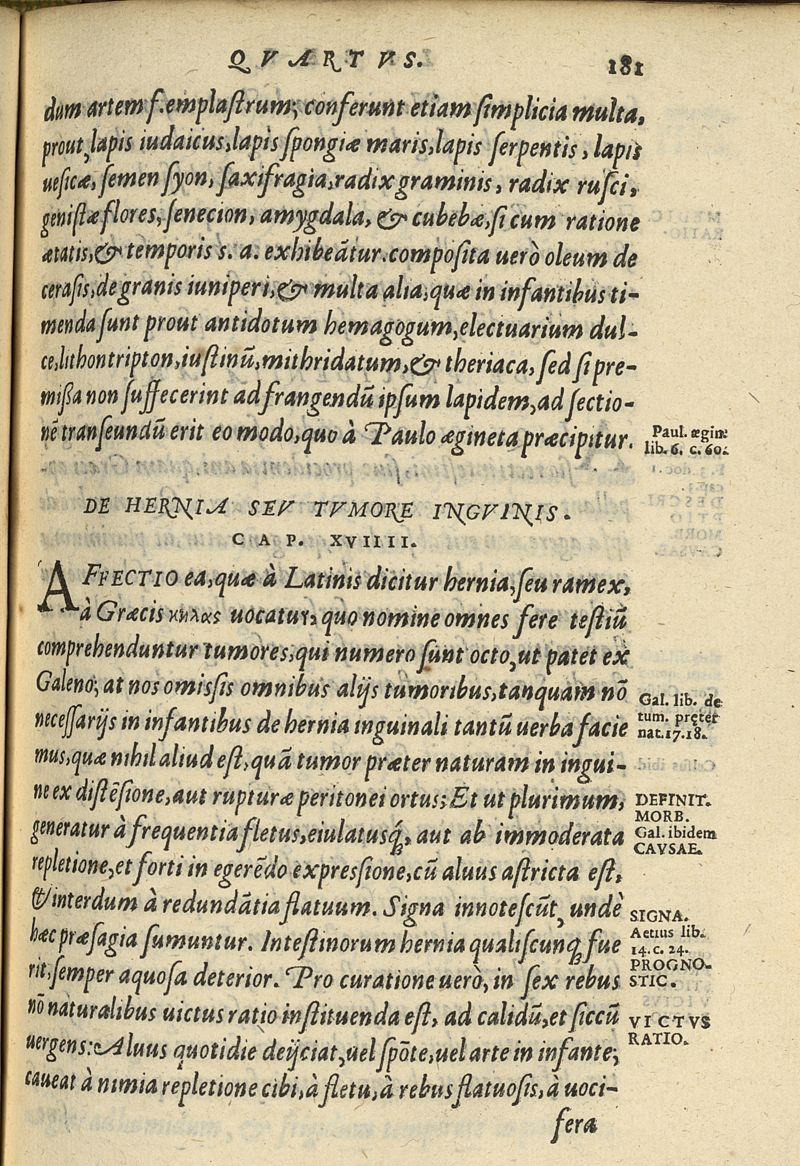 QVARTVS.
181
dum artem f. emplaſtrum; conferunt etiam ſimplicia multa,
prout, lapis iudaicus, lapis ſpongiæ maris, lapis ſerpentis, lapis
ueſicæ, ſemen ſyon, ſaxifragia, radix graminis, radix ruſci,
geniſtæ flores, ſenecion, amygdala, & cubebæ, ſi cum ratione
ætatis, & temporis s. a. exhibeãtur. compoſita uerò oleum de
ceraſis, de granis iuniperi, & multa alia, quæ in infantibus ti-
menda ſunt prout antidotum hemagogum, electuarium dul-
ce, lithontripton, iuſtinũ, mithridatum, & theriaca, ſed ſi pre-
mißa non ſuffecerint ad frangendũ ipſum lapidem, ad ſectio-
nẽ tranſeundũ erit eo modo, quo à Paulo ægineta præcipitur.
Paul. ægine
lib. 6. c. 60.
DE HERNIA SEV TVMORE INGVINIS.
CAP. XVIIII.
AFFECTIO ea, quæ à Latinis dicitur hernia, ſeu ramex,
à Græcis κηλας uocatur, quo nomine omnes fere teſtiũ
comprehenduntur tumores, qui numero ſunt octo, ut patet ex
Galeno; at nos omiſsis omnibus alijs tumoribus, tanquam nõ
neceſſarijs in infantibus de hernia inguinali tantũ uerba facie
mus, quæ nihil aliud eſt, quã tumor præter naturam in ingui-
ne ex diſtẽſione, aut rupturæ peritonei ortus; Et ut plurimum,
generatur à frequentia fletus, eiulatusq́, aut ab immoderata
repletione, et forti in egerẽdo expreſsione, cũ aluus aſtricta eſt,
& interdum à redundãtia flatuum. Signa innoteſcũt, undè
hæc præſagia ſumuntur. Inteſtinorum hernia qualiſcunq́ fue
rit, ſemper aquoſa deterior. Pro curatione uerò, in ſex rebus
nõ naturalibus uictus ratio inſtituenda eſt, ad calidũ, et ſiccũ
uergens: Aluus quotidie deijciat, uel ſpõte, uel arte in infante;
caueat à nimia repletione cibi, à fletu, à rebus flatuoſis, à uoci-
fera
Gal. lib. de
tum. preter
nat. 17. 18.
DEFINIT.
MORB.
Gal. ibidem
CAVSAE.
SIGNA.
Aetius lib.
14. c. 24.
PROGNO-
STIC.
VICTVS
RATIO.